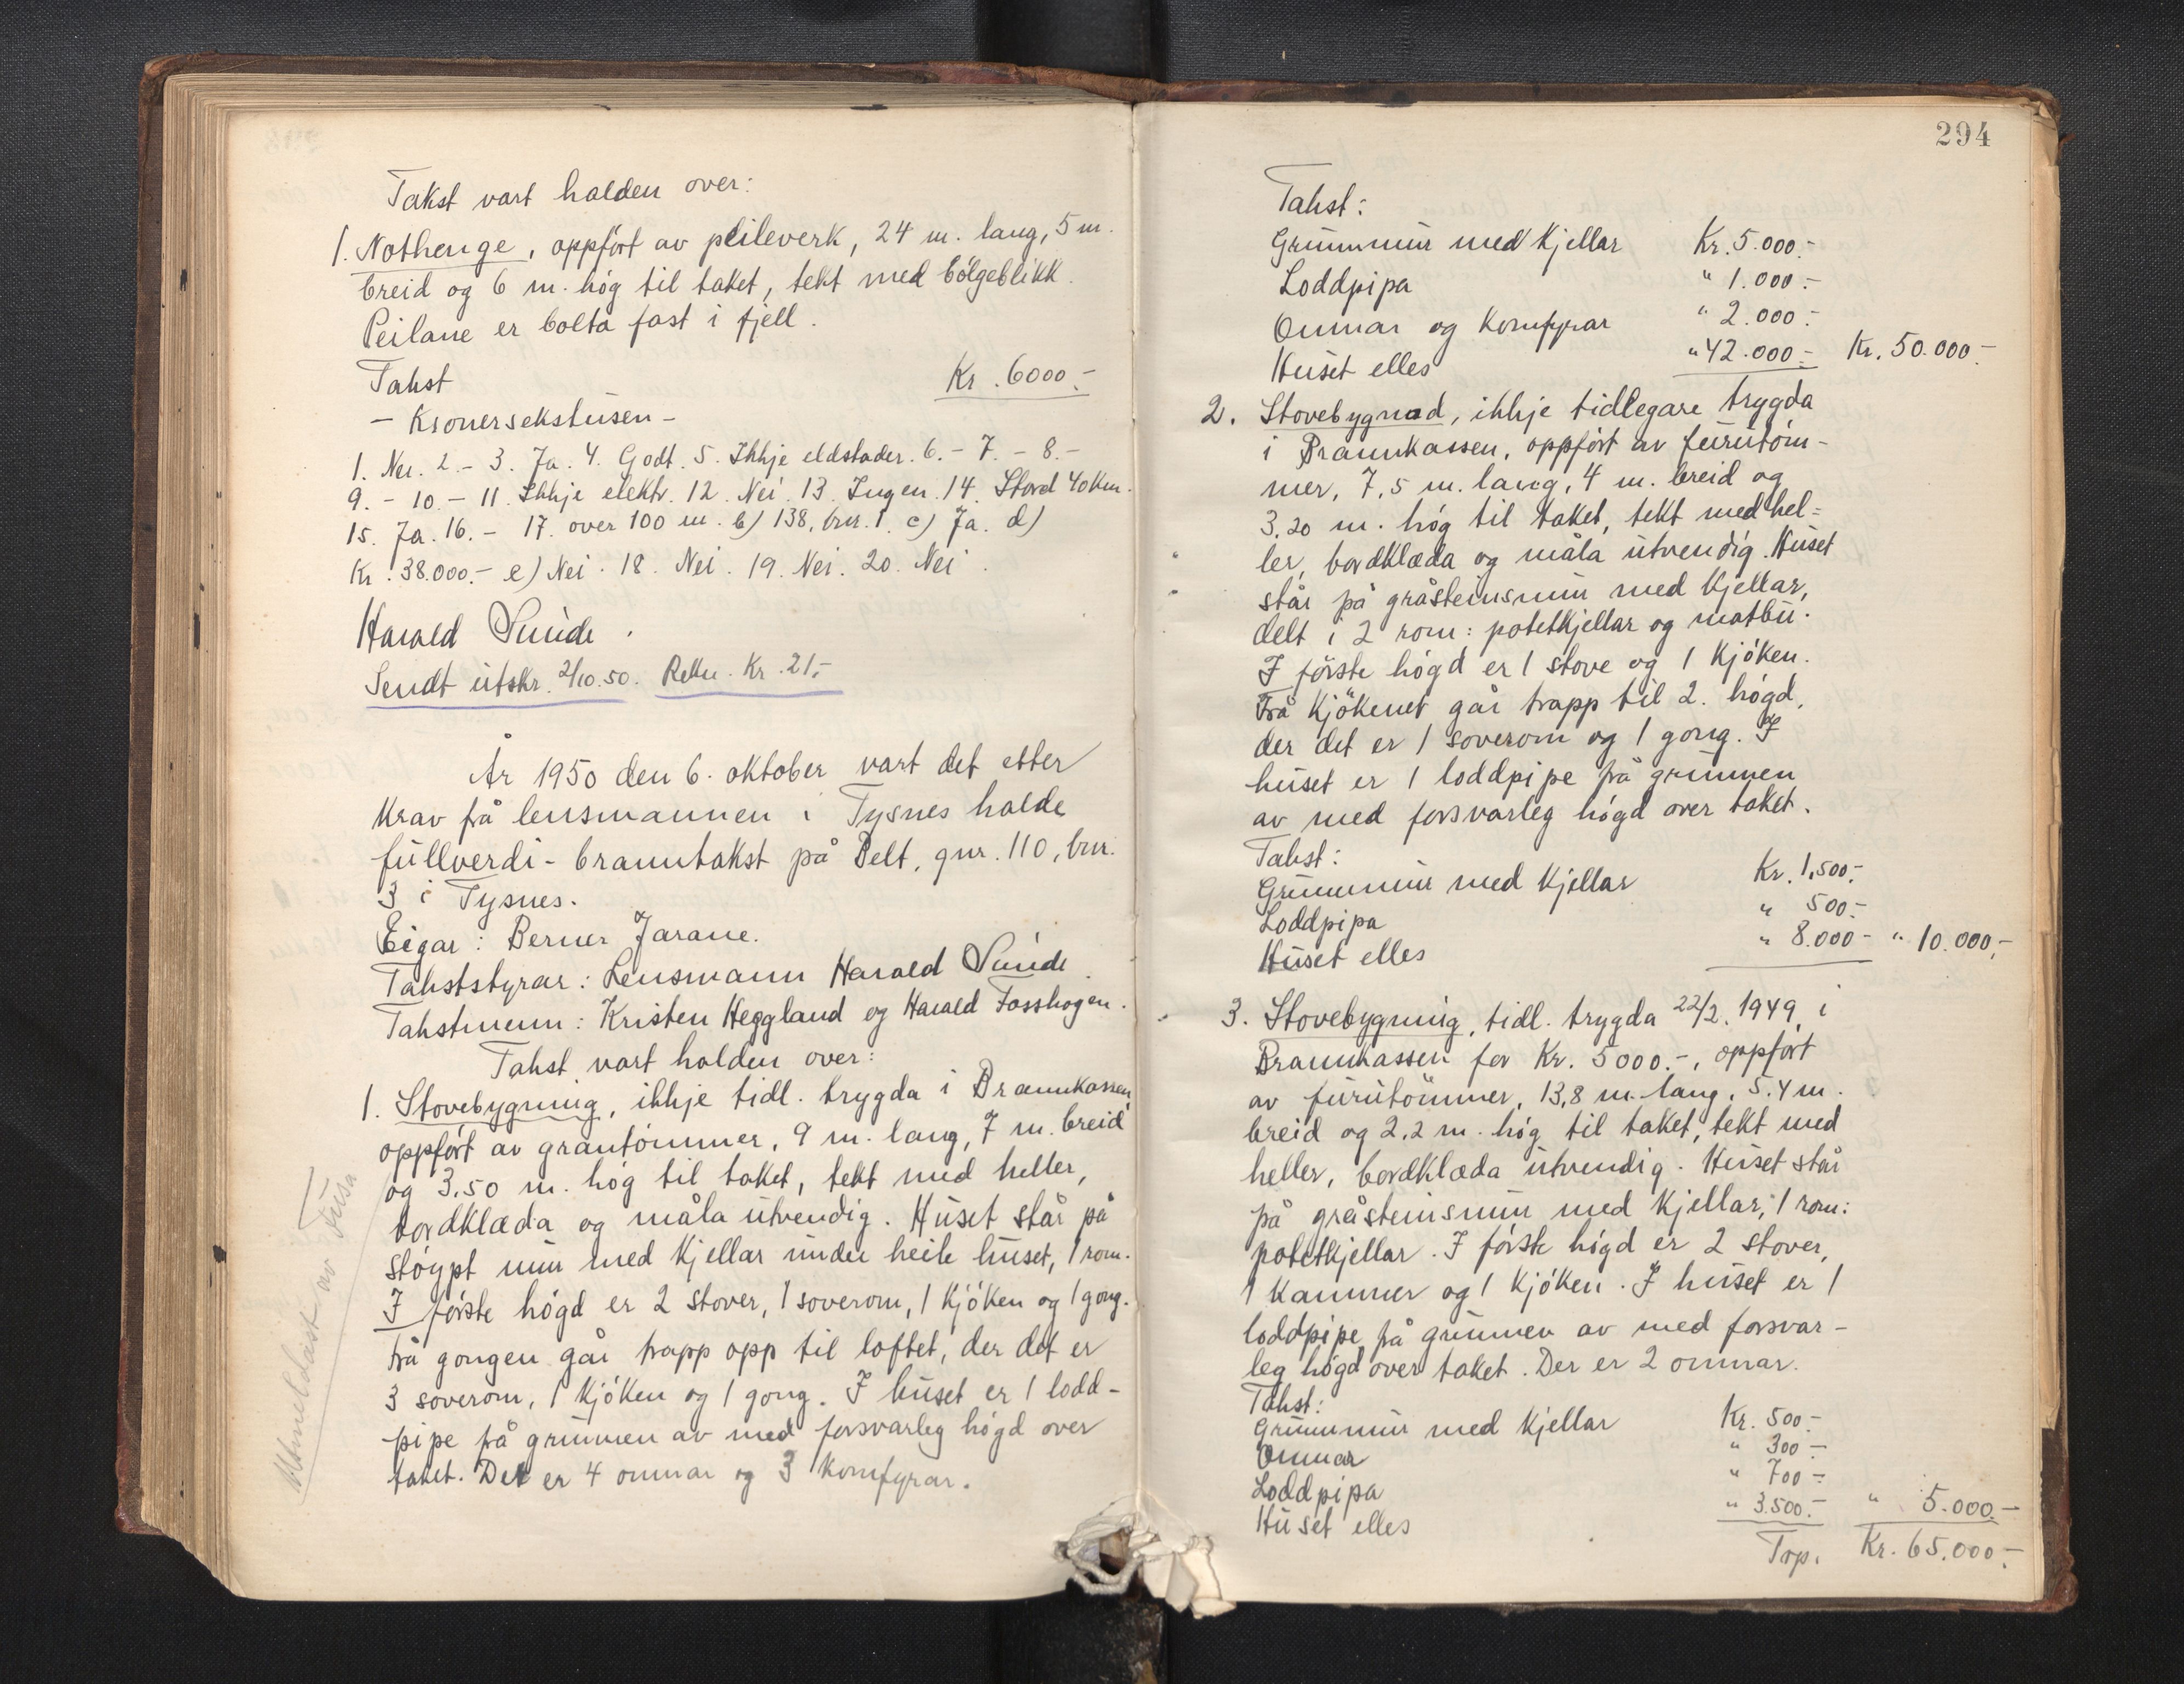 Takst vart halden over:
1. Nothenge, oppført av peileverk, 24 m. lang, 5 m.
breid og 6 m. høg til taket, tekt med bölgeblikk.
Peilane er bolta fast i fjell.
Takst Kr. 6000.-
- Kronersekstusen -
1. Nei. 2.- 3. Ja. 4. Godt. 5. Ikkje eldstader. 6.- 7.- 8.-
9.- 10.- 11. Ikkje elektr. 12. Nei. 13. Ingen. 14. Stord 40 km.
15. Ja. 16.- 17. over 100 m. b) 138, bnr. 1. c) Ja. d)
Kr. 38.000.- e) Nei. 18. Nei. 19. Nei. 20. Nei.
Harald Sunde.
Sendt utskr. 2/10.50. Rekn. Kr. 21,-
År 1950 den 6. oktober vart det etter
krav frå lensmannen i Tysnes halde
fullverdi-branntakst på Belt, gnr. 110, bnr.
3 i Tysnes.
Eigar: Berner Jarane.
Takststyrar: Lensmann Harald Sunde.
Takstmenn: Kristen Heggland og Harald Fosshagen.
Takst vart halden over:
1. Stovebygning, ikkje tidl. trygda i Brannkassen,
oppført av grantömmer, 9 m. lang, 7 m. breid
og 3.50 m. høg til taket, tekt med heller,
bordklæda og måla utvendig. Huset står på
støypt mur med kjellar under heile huset, 1 rom.
I første høgd er 2 stover, 1 soverom, 1 kjøken og 1 gong.
Frå gongen går trapp opp til loftet, der det er
3 soverom, 1 kjøken og 1 gong. I huset er 1 lodd-
pipe frå grunnen av med forsvarleg høgd over
taket. Det er 4 omnar og 3 komfyrar.
av Fusa
294
Takst:
Grunnmur med kjellar Kr. 5.000.-
Loddpipa " 1.000.-
Omnar og komfyrar " 2.000.-
Huset elles " 42.000.- Kr. 50.000.-
2. Stovebygnad, ikkje tidlegare trygda
i Brannkassen, oppført av furutöm-
mer, 7,5 m. lang, 4 m. breid og
3.20 m. høg til taket, tekt med hel-
ler, bordklæda og måla utvendig. Huset
står på gråsteinsmur med kjellar,
delt i 2 rom: potetkjellar og matbu.
I første høgd er 1 stove og 1 kjøken.
Frå kjökenet går trapp til 2. høgd,
der det er 1 soverom og 1 gong. I
huset er 1 loddpipe frå grunnen
av med forsvarleg høgd over taket.
Takst:
Grunnmur med kjellar Kr. 1.500.-
Loddpipa " 500.-
Huset elles " 8.000.- " 10.000,-
3. Stovebygning, tidl. trygda 22/2. 1949 i
Brannkassen for Kr. 5000.-, oppført
av furutömmer, 13,8 m. lang, 5.4 m.
breid og 2.2 m. høg til taket, tekt med
heller, bordklæda utvendig. Huset står
på gråsteinsmur med kjellar, 1 rom:
potetkjellar. I første høgd er 2 stover,
1 kammer og 1 kjøken. I huset er 1
loddpipe frå grunnen av med forsvar-
leg høgd over taket. Der er 2 omnar.
Takst:
Grunnmur med kjellar Kr. 500.-
Omnar " 300.-
Loddpipa " 700.-
Huset elles " 3.500.- " 5.000.-
Trp. Kr. 65.000.-